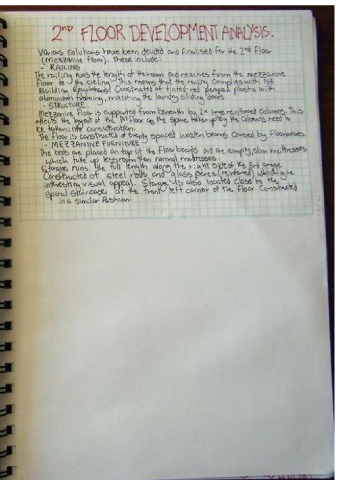 2nd FLOOR DEVELOPMENT ANALYSIS.
Various Solutions have been decided and Finalised for the 2nd Floor
(Mezzanine Floor). These include:
- RAILING
The railing runs the length of the room and reaches from the mezzanine
Floor to the ceiling. This means that the railing complies with
Building Constructed of tinted red plastic with
aluminium framing, matching the laundry sliding doors.
- STRUCTURE
Mezzanine Floor is supported from beneath by 2x large reinforced columns. This
affects the layout of the 1st Floor as the space taken up by the columns need to
be taken into consideration.
The Floor is constructed of evenly spaced wooden beams covered by Floorboards.
- MEZZANINE FURNITURE
The beds are placed on top of the Floor boards and are simply mattresses
which take up less room than normal mattresses.
Storage runs the full length along the right side of the
Constructed of steel rods and glass panes which give
interesting visual appeal. Storage is also located close to the
Spiral Staircase at the front left corner of the Floor Constructed
in a similar fashion.